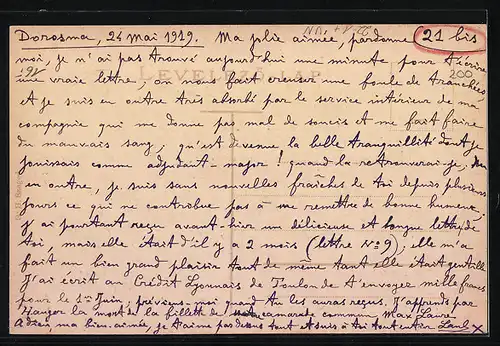 Dorosna, 24 Mai 1919. Ma jolie aimée, pardonne 21 bis
moi, je n'ai pas trouvé aujourd'hui une minute pour t'écrire
une vraie lettre, on nous fait creuser une foule de tranchées, 200
et je suis en outre très absorbé par le service intérieur de ma
compagnie qui me donne pas mal de soucis et me fait faire
du mauvais sang, qu'est devenue la belle tranquillité dont je
jouissais comme adjudant-major! quand la retrouverai-je,
en outre, je suis sans nouvelles fraîches de toi depuis plusieurs
jours ce qui ne contribue pas à me remettre de bonne humeur,
j'ai pourtant reçu avant-hier une délicieuse et longue lettre de
toi, mais elle était d'il y a 2 mois (lettre No 9); elle m'a
fait un bien grand plaisir tout de même tant elle était gentille
J'ai écrit au Crédit Lyonnais de Toulon de t'envoyer mille francs
pour le 1er Juin, préviens-moi quand tu les auras reçus. J'apprends par
la mort de la fillette de camarade commun Max Laure
Adieu, ma bien-aimée, je t'aime par dessus tout et suis à toi tout entier